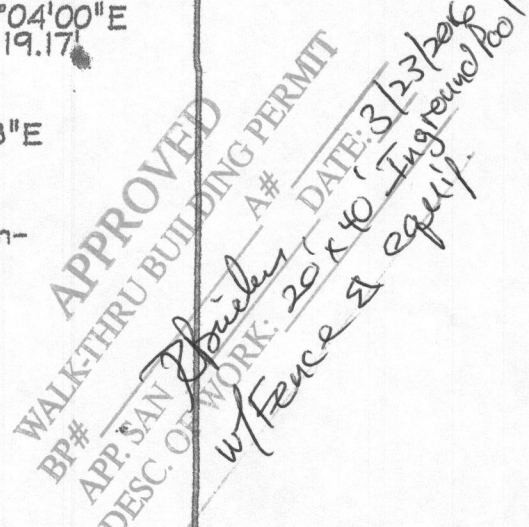 °04'00"E
19.17'
"E
APPROVED
WALK-THRU BUILDING PERMIT
BP# A#
APP. SAN DATE: 3/23/2016
DESC. OF WORK: 20' x 40' Inground Pool
w/Fence & equip.